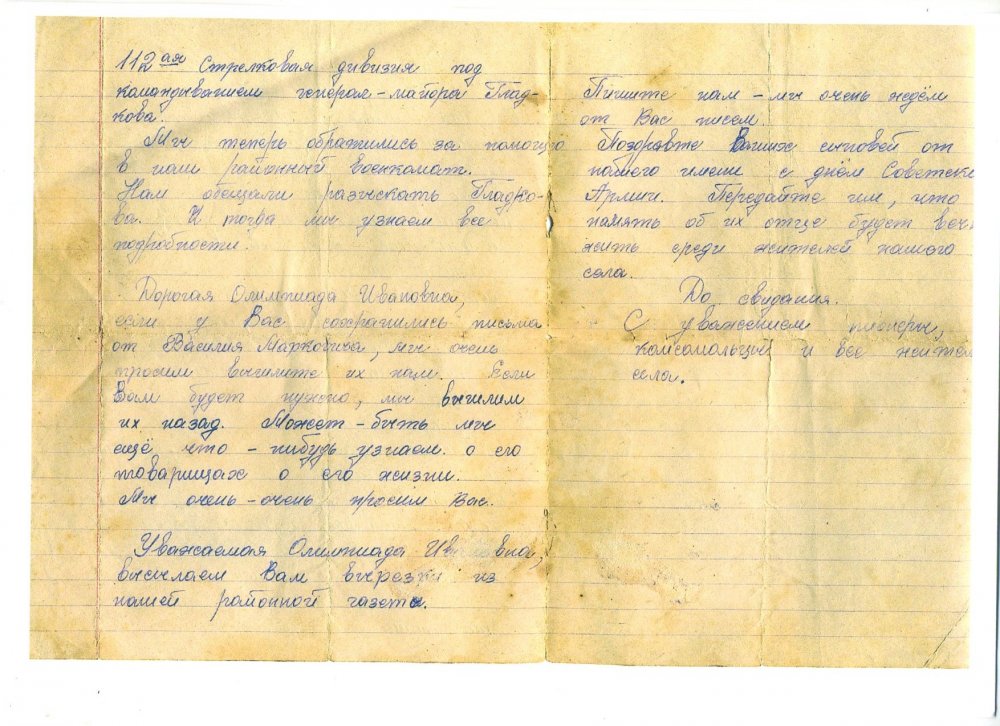 112 ая Стрелковая дивизия под
командыванием генерал-майора Глад-
кова.
Мы теперь обратились за помощью
в наш районный военкомат.
Нам обещали разыскать Гладко-
ва. И тогда мы узнаем все
подробности.
Дорогая Олимпиада Ивановна,
если у Вас сохранились письма
от Василия Марковича, мы очень
просим вышлите их нам. Если
Вам будет нужно, мы вышлим
их назад. Может-быть мы
ещё что-нибудь узнаем о его
товарищах о его жизни.
Мы очень-очень просим Вас.
Уважаемая Олимпиада Ивановна,
высылаем Вам вырезки из
нашей районной газеты.
Пишите нам - мы очень ждём
от Вас писем.
Поздравте Ваших сыновей от
нашего имени с днём Советск
Армии. Передайте им, что
память об их отце будет веч
жить среди жителей нашого
села.
До свидания.
С уважением пионеры,
комсомольцы и все жител
села.